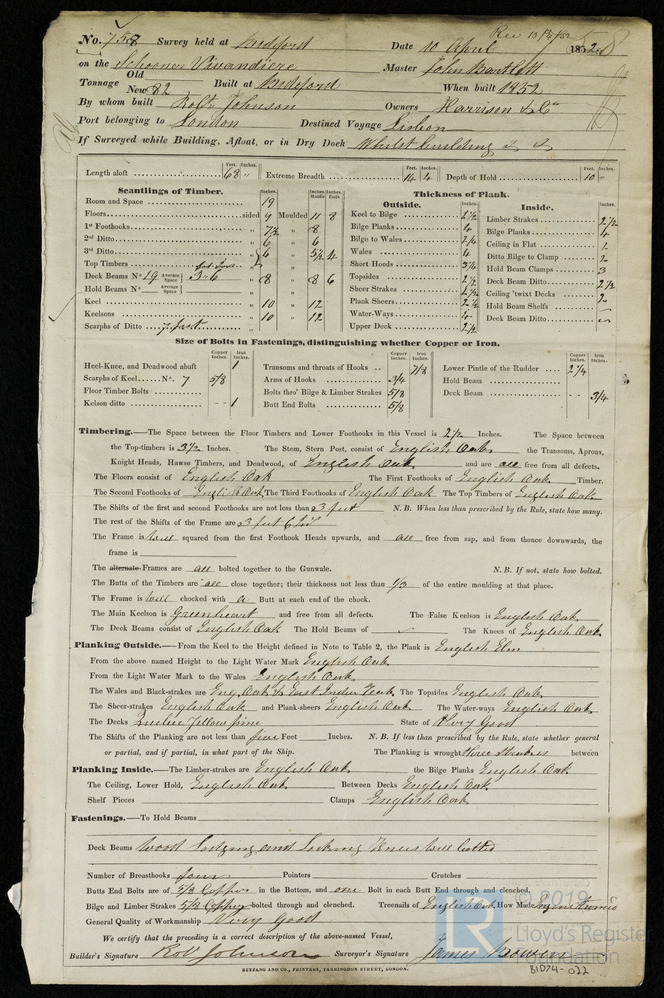 Rec 13/4/52
No. 758 Survey held at Bideford Date 10 April 1852
on the Schooner Vivandiere Master John Bartlett
Tonnage Old New 82 Built at Bideford When built 1852
By whom built Robt Johnson Owners Harrison & Co
Port belonging to London Destined Voyage Lisbon
If Surveyed while Building, Afloat, or in Dry Dock Whilst building
Feet. Inches. Feet. Inches. Feet. Inches.
Length aloft 68 " Extreme Breadth 14 4 Depth of Hold 10 "
Scantlings of Timber.
Inches. Inches. Middle Inches. Ends
Room and Space 19
Floors sided 9 Moulded 11 8
1st Foothooks " 7½ " 8
2nd Ditto " 6 " 6
3rd Ditto " 6 " 5½ 4
Top Timbers
Deck Beams No. 19 Average Space 3-6 " 8 " 8 6
Hold Beams No. Average Space
Keel " 10 " 12
Keelsons " 10 " 12
Scarphs of Ditto 7 feet
Thickness of Plank.
Outside. Inches.
Keel to Bilge 2½
Bilge Planks 4
Bilge to Wales 2½
Wales 4
Short Hoods
Topsides 2½
Sheer Strakes 2½
Plank Sheers 2½
Water-Ways 4
Upper Deck 2½
Inside. Inches.
Limber Strakes 2½
Bilge Planks 4
Ceiling in Flat
Ditto Bilge to Clamp 2
Hold Beam Clamps 3
Deck Beam Ditto 2½
Ceiling 'twixt Decks 2
Hold Beam Shelfs
Deck Beam Ditto
Size of Bolts in Fastenings, distinguishing whether Copper or Iron.
Copper Inches. Iron Inches. Copper Inches. Iron Inches. Copper Inches. Iron Inches.
Heel-Knee, and Deadwood abaft 1 Transoms and throats of Hooks 7/8 Lower Pintle of the Rudder 2¼
Scarphs of Keel No. 7 5/8 Arms of Hooks 3/4 Hold Beam
Floor Timber Bolts Bolts thro' Bilge & Limber Strakes 5/8 Deck Beam 3/4
Kelson ditto 1 Butt End Bolts 5/8
Timbering.—The Space between the Floor Timbers and Lower Foothooks in this Vessel is 2½ Inches. The Space between
the Top-timbers is 3½ Inches. The Stem, Stern Post, consist of English Oak the Transoms, Aprons,
Knight Heads, Hawse Timbers, and Deadwood, of English Oak, and are all free from all defects.
The Floors consist of English Oak The First Foothooks of English Oak Timber.
The Second Foothooks of English Oak The Third Foothooks of English Oak The Top Timbers of English Oak
The Shifts of the first and second Foothooks are not less than 3 feet N.B. When less than prescribed by the Rule, state how many.
The rest of the Shifts of the Frame are 3 feet 6 In
The Frame is well squared from the first Foothook Heads upwards, and are free from sap, and from thence downwards, the
frame is
The alternate Frames are all bolted together to the Gunwale. N.B. If not, state how bolted.
The Butts of the Timbers are all close together; their thickness not less than 1/3 of the entire moulding at that place.
The Frame is well chocked with a Butt at each end of the chock.
The Main Keelson is Greenheart and free from all defects. The False Keelson is English Oak
The Deck Beams consist of English Oak The Hold Beams of The Knees of English Oak
Planking Outside.—From the Keel to the Height defined in Note to Table 2, the Plank is English Elm
From the above named Height to the Light Water Mark English Oak
From the Light Water Mark to the Wales English Oak
The Wales and Black-strakes are Eng Oak & East India Teak The Topsides English Oak
The Sheer-strakes English Oak and Plank-sheers English Oak The Water-ways English Oak
The Decks Quebec Yellow pine State of Very Good
The Shifts of the Planking are not less than four Feet Inches. N.B. If less than prescribed by the Rule, state whether general
or partial, and if partial, in what part of the Ship. The Planking is wrought three Strakes between
Planking Inside.—The Limber-strakes are English Oak the Bilge Planks English Oak
The Ceiling, Lower Hold, English Oak Between Decks English Oak
Shelf Pieces Clamps English Oak
Fastenings.—To Hold Beams
Deck Beams Wood Lodging and Knees well bolted
Number of Breasthooks four Pointers Crutches
Butts End Bolts are of 5/8 Copper in the Bottom, and one Bolt in each Butt End through and clenched.
Bilge and Limber Strakes 5/8 Copper bolted through and clenched. Treenails of English Oak How Made
General Quality of Workmanship Very Good
We certify that the preceding is a correct description of the above-named Vessel,
Builder's Signature Robt Johnson Surveyor's Signature James Bowen
SEYFANG AND CO., PRINTERS, FARRINGDON STREET, LONDON.
© 2019
Lloyd's Register
Foundation
BID74-022